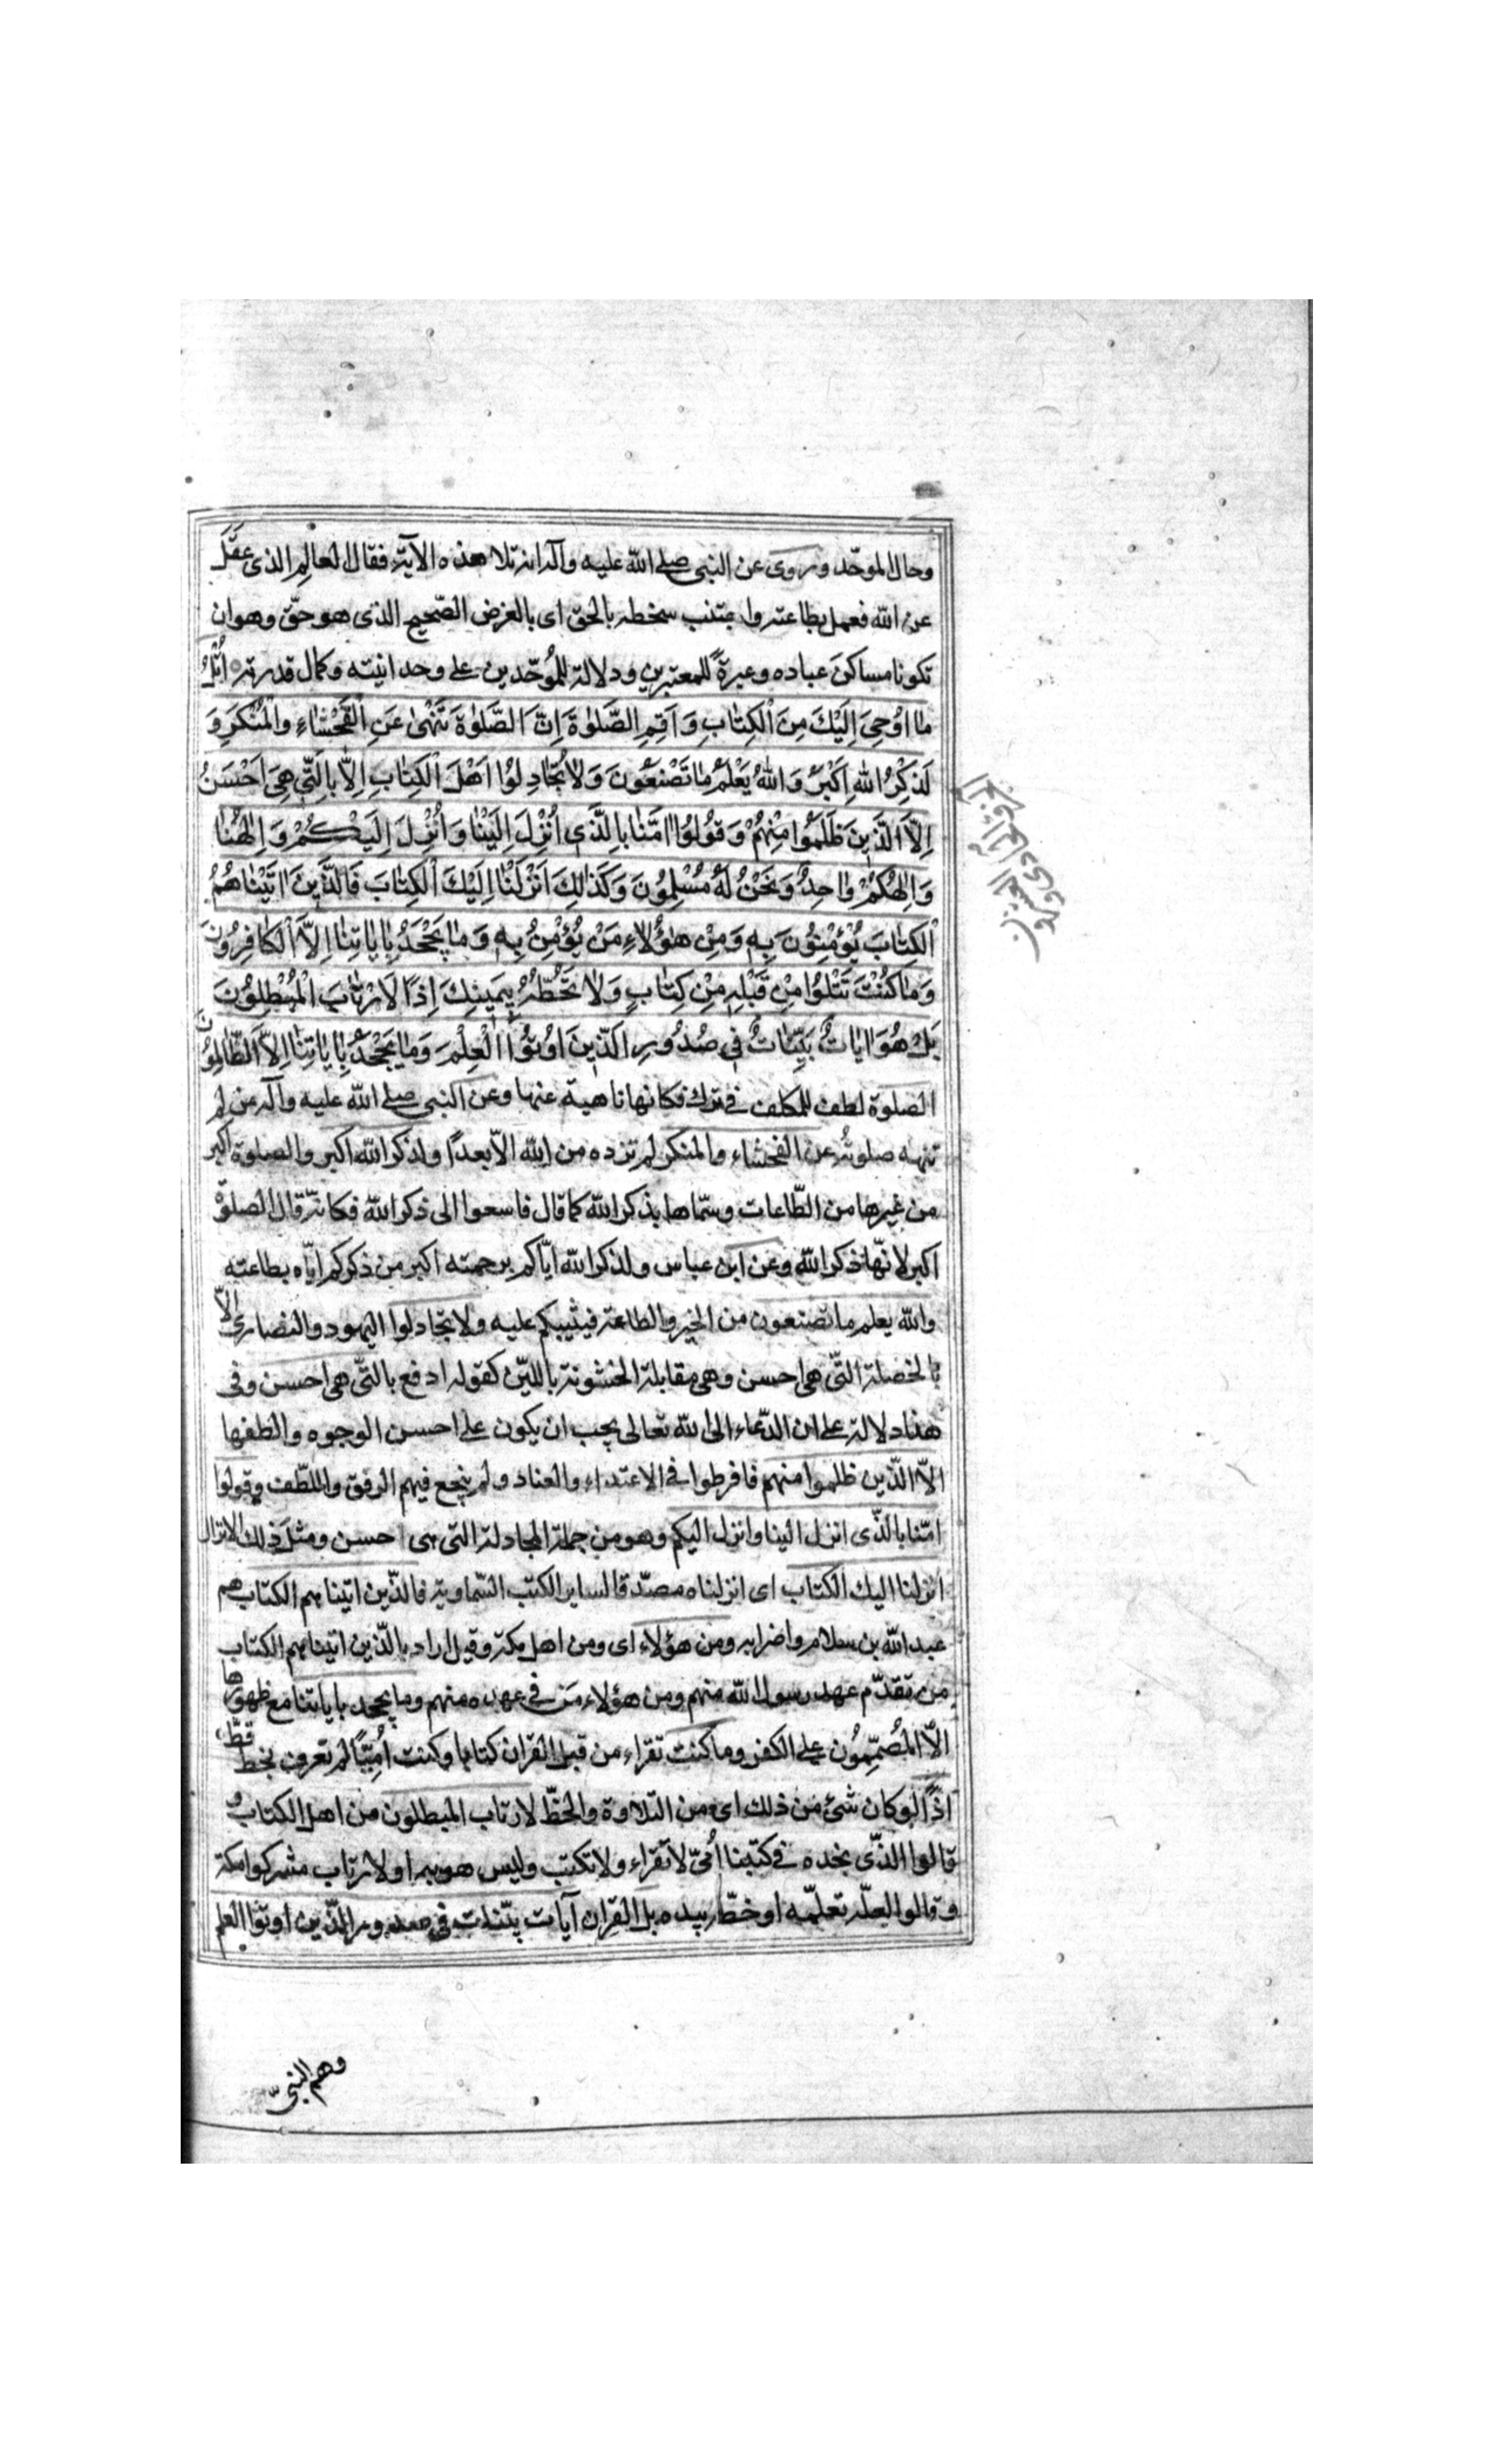 وحال الموحّد وروى عن النبى صلى الله عليه وآله انه تلا هذه الآية فقال العالِم الذى عَقَلَ
عن الله فعمل بطاعته واجتنب سخطه بالحق اى بالغرض الصّحيح الذى هو حقّ وهو ان
تكونا مساكنَ عباده وعبرةً للمعتبرين ودلالة للمُوحّدين على وحدانيته وكمال قدرته اُتْلُ
مٰا اُوْحِىَ اِلَيْكَ مِنَ اْلكِتٰابِ وَ اَقِمِ الصَّلوٰةَ اِنَّ الصَّلوٰةَ تَنْهىٰ عَنِ الْفَحْشٰاءِ وَالْمُنْكَرِ وَ
لَذِكْرُ اللهِ اَكْبَرُ وَ اللهُ يَعْلَمُ مٰا تَصْنَعُونَ وَ لاٰ تُجٰادِلُوا اَهْلَ اْلكِتٰابِ اِلاّٰ بِالَّتِى هِىَ اَحْسَنُ
اِلاَّ الَّذِينَ ظَلَمُوا مِنْهُمْ وَ قُولُوا اٰمَنّٰا بِالَّذِى اُنْزِلَ اِلَيْنٰا وَ اُنْزِلَ اِلَيْكُمْ وَ اِلٰهُنٰا
وَ اِلٰهُكُمْ وٰاحِدٌ وَ نَحْنُ لَهُ مُسْلِمُونَ وَ كَذٰلِكَ اَنْزَلْنٰا اِلَيْكَ اْلكِتٰابَ فَالَّذِينَ اٰتَيْنٰاهُمُ
اْلكِتٰابَ يُؤْمِنُونَ بِهِ وَ مِنْ هٰؤُلاٰءِ مَنْ يُؤْمِنُ بِهِ وَ مٰا يَجْحَدُ بِاٰيٰاتِنٰا اِلاَّ اْلكٰافِرُونَ
وَ مٰا كُنْتَ تَتْلُوا مِنْ قَبْلِهِ مِنْ كِتٰابٍ وَ لاٰ تَخُطُّهُ بِيَمِينِكَ اِذًا لاَرْتٰابَ الْمُبْطِلُونَ
بَلْ هُوَ اٰيٰاتٌ بَيِّنٰاتٌ فِى صُدُورِ الَّذِينَ اُوتُوا الْعِلْمَ وَ مٰا يَجْحَدُ بِاٰيٰاتِنٰا اِلاَّ الظّٰالِمُونَ
الصلوة لطف للمكلف فى ترك فكانها ناهية عنها وعن النبى صلى الله عليه وآله من لم
تنهه صلوتُه عن الفحشاء والمنكر لم تزده من الله الاّ بعدًا ولذكر الله اكبر والصلوة اكبر
من غيرها من الطّاعات وسمّاها بذكر الله كما قال فاسعوا الى ذكر الله فكانّه قال الصلوة
اكبر لانّها ذكر الله وعن ابن عباس ولذكر الله ايّاكم برحمته اكبر من ذكركم ايّاه بطاعته
والله يعلم ما تصنعون من الخير والطاعة فيثيبكم عليه ولا تجادلوا اليهود والنصارى الاّ
بالخصلة التّى هى احسن وهى مقابلة الخشونة باللين كقوله ادفع بالتّى هى احسن وفى
هذا دلالة على ان الدّعاء الى الله تعالى يجب ان يكون على احسن الوجوه والطفها
الاّ الّذين ظلموا منهم فافرطوا فى الاعتداء والعناد ولم ينجع فيهم الرفق واللطّف وقولوا
امّنا بالّذى انزل الينا وانزل اليكم وهو من جملة المجادلة التى هى احسن ومثل ذلك الانزال
انزلنا اليك الكتاب اى انزلناه مصدّقا لساير الكتب السّماوية فالّذين اتينا هم الكتاب هم
عبد الله بن سلام واضرابه ومن هؤلاء اى ومن اهل مكة وقيل اراد بالّذين اتيناهم الكتاب
من تقدّم عهد رسول الله منهم ومن هؤلاء مَن فى عهده منهم وما يجحد باياتنا مع ظهورها
الاّ المُصمّمُون على الكفر وما كنت تقراء من قبل القران كتابا وكنت اُمّيًّا لم تعرف بخط قطّ
اذًا لو كان شئ من ذلك اى من التلاوة والخطّ لارتاب المبطلون من اهل الكتاب و
قالوا الذّى نجده فى كتبنا اُمّىّ لا يقراء ولا يكتب وليس هو به او لارتاب مشركوا مكة
و قالوا لعلّه تعلّمه او خطّه بيده بل القران آيات بيّنات فى صدور الّذين اوتوا العلم
وهم النبىّ